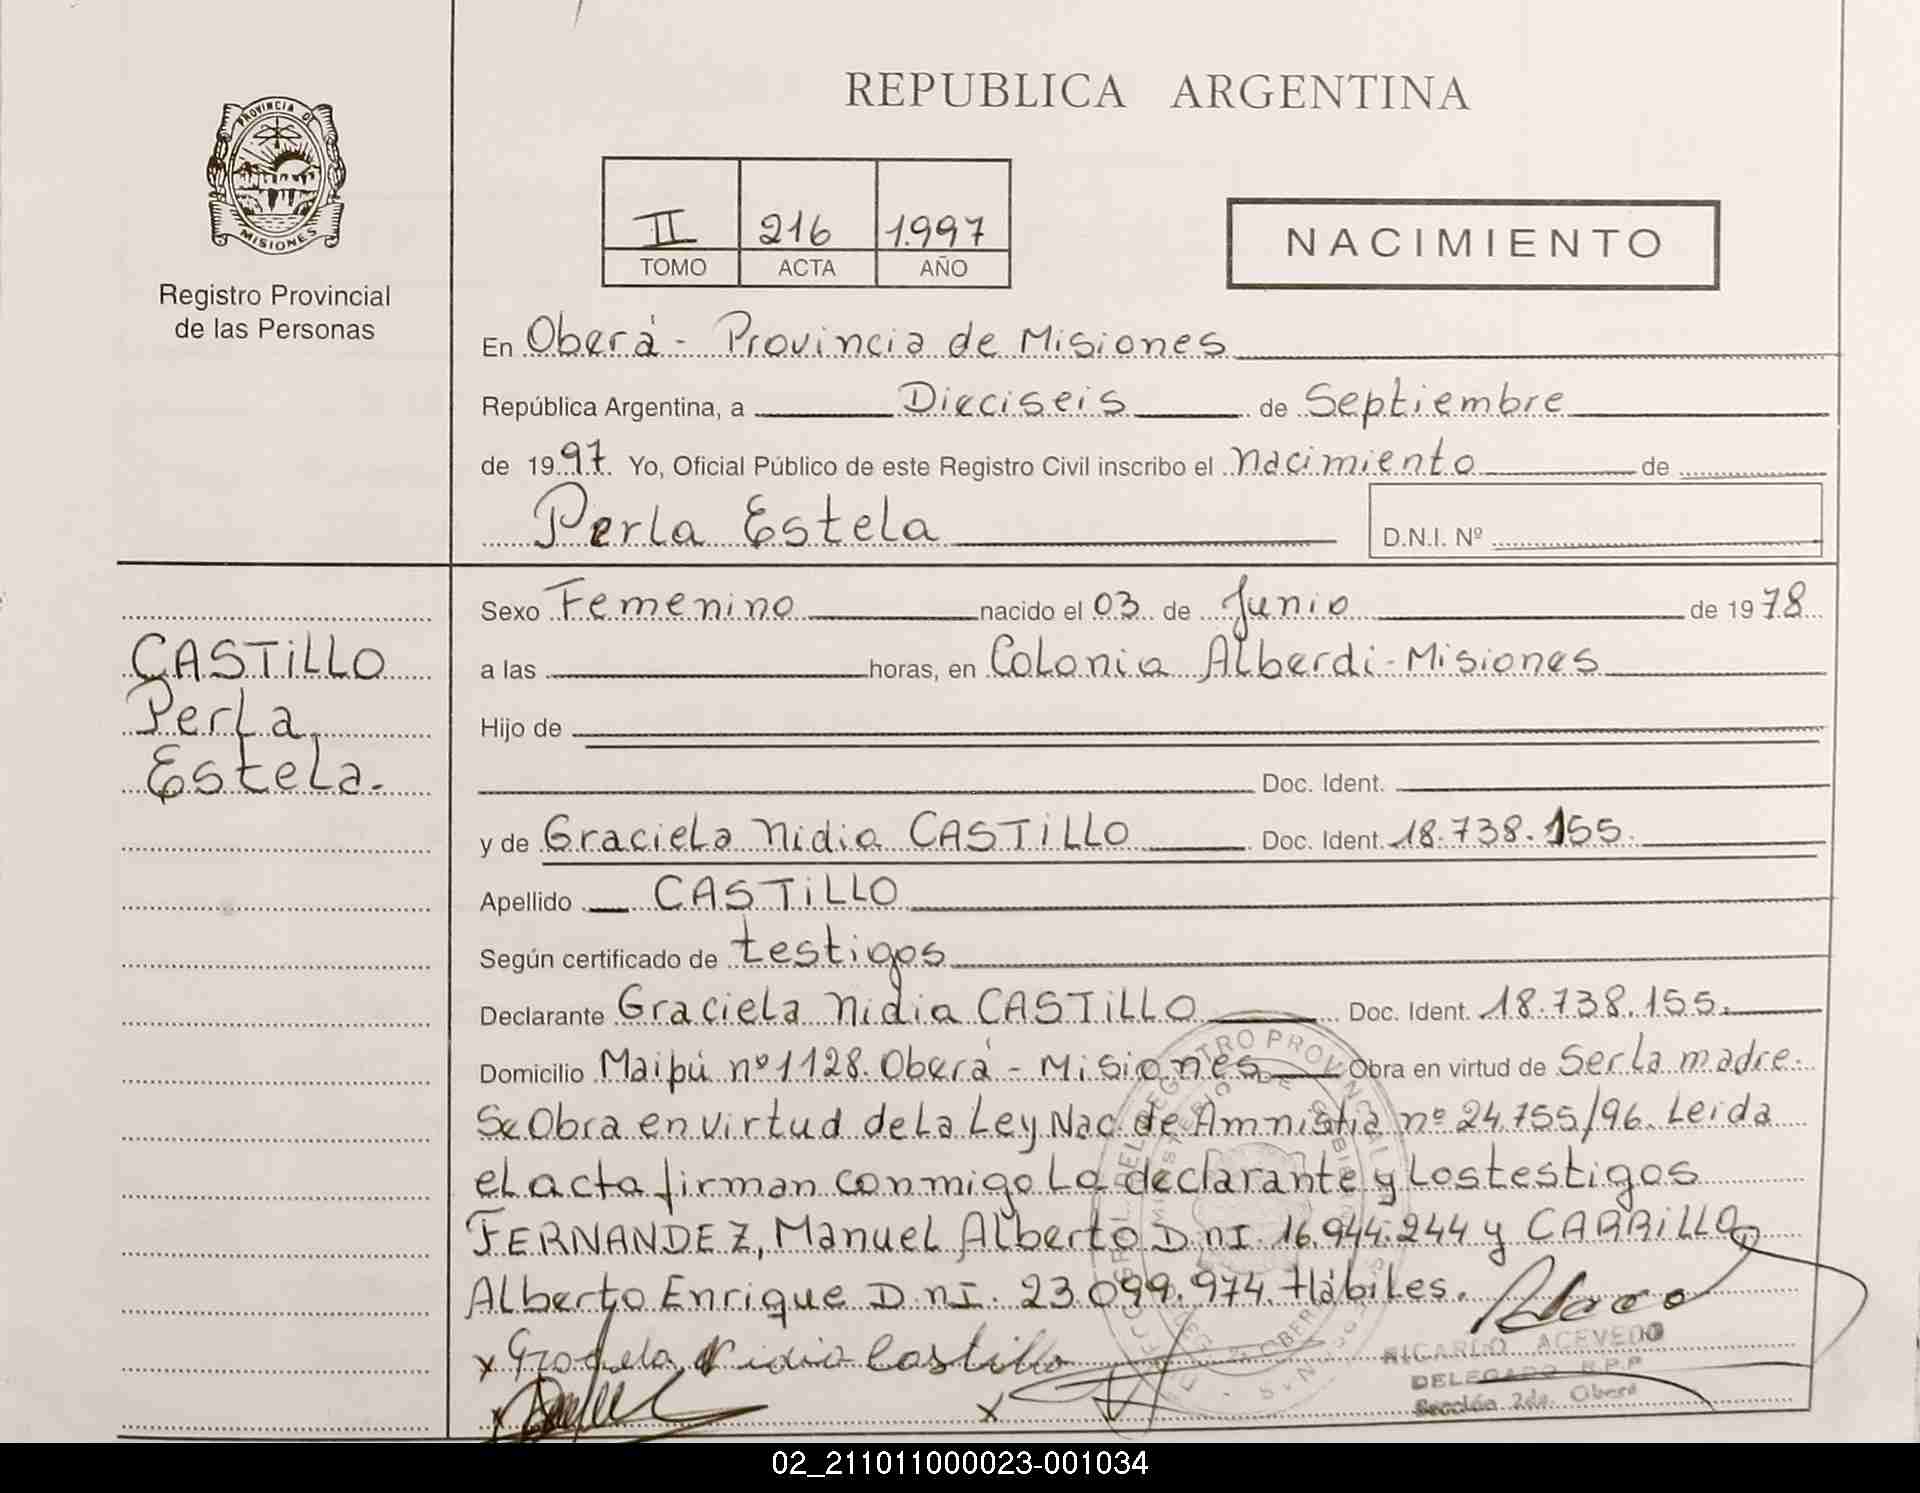 REPUBLICA ARGENTINA
PROVINCIA DE
MISIONES
Registro Provincial
de las Personas
II 216 1.997
TOMO ACTA AÑO
NACIMIENTO
En Oberá - Provincia de Misiones
República Argentina, a Dieciseis de Septiembre
de 1997. Yo, Oficial Público de este Registro Civil inscribo el Nacimiento de
Perla Estela
D.N.I. Nº
CASTiLLO
Perla
Estela.
Sexo Femenino nacido el 03 de Junio de 1978
a las horas, en Colonia Alberdi - Misiones
Hijo de
Doc. Ident.
y de Graciela Nidia CASTiLLO Doc. Ident. 18.738.155.
Apellido CASTiLLO
Según certificado de testigos
Declarante Graciela Nidia CASTiLLO Doc. Ident. 18.738.155.
Domicilio Maipú nº 1128. Oberá - Misiones Obra en virtud de Ser La madre.
Se Obra en virtud de La Ley Nac. de Amnistia nº 24.755/96. Leida
el acta firman conmigo La declarante y Los testigos
FERNANDEZ, Manuel Alberto D.nI. 16.944.244 y CARRiLLO,
Alberto Enrique D.nI. 23.099.974. Hábiles.
x Graciela Nidia Castillo
x x
RICARDO ACEVEDO
DELEGADO R.P.P
Sección 2da. Oberá
02_211011000023-001034